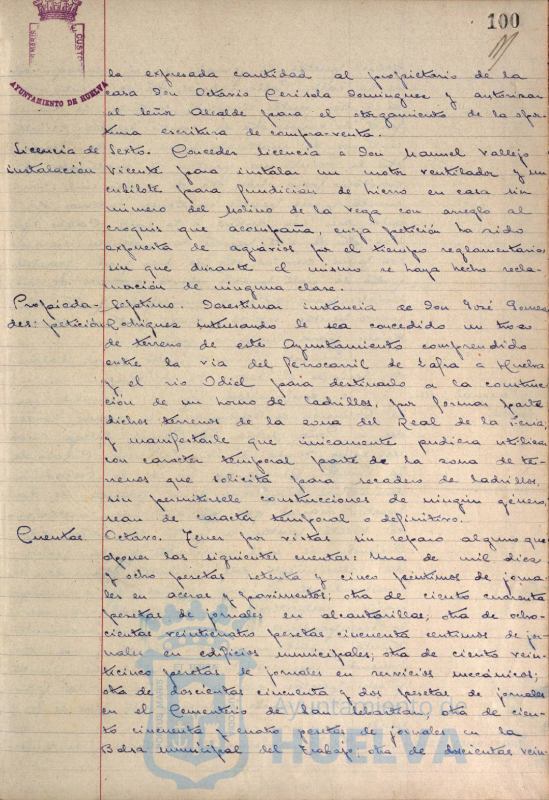 100
AYUNTAMIENTO DE HUELVA
la expresada cantidad al propietario de la
casa Don Octavio Cerisola Dominguez y autorizar
al señor Alcalde para el otorgamiento de la opor-
tuna escritura de compra-venta.
Licencia de instalación
Sexto. Conceder licencia a Don Manuel Vallejo
Vicente para instalar un motor ventilador y un
cubilote para fundición de hierro en casa sin
número del Molino de la Vega con arreglo al
croquis que acompaña, cuya petición ha sido
expuesta de agravios por el tiempo reglamentario
sin que durante el mismo se haya hecho recla-
mación de ninguna clase.
Propieda-
des: petición
Séptimo. Desestimar instancia de Don José Gomez
Rodriguez interesando le sea concedido un trozo
de terreno de este Ayuntamiento comprendido
entre la via del ferrocarril de Zafra a Huelva
y el rio Odiel para destinarlo a la construc-
ción de un horno de ladrillos, por formar parte
dichos terrenos de la zona del Real de la Feria,
y manifestarle que únicamente pudiera utilizar
con caracter temporal parte de la zona de te-
rrenos que solicita para secadero de ladrillos,
sin permitírsele construcciones de ningún género,
sean de caracter temporal o definitivo.
Cuentas
Octavo. Tener por vistas sin reparo alguno que
oponer las siguientes cuentas: Una de mil diez
y ocho pesetas setenta y cinco céntimos de jorna-
les en aceras y pavimentos; otra de ciento cuarenta
pesetas de jornales en alcantarillas; otra de ocho-
cientas veinticuatro pesetas cincuenta centimos de jor-
nales en edificios municipales; otra de ciento vein-
ticinco pesetas de jornales en servicios mecánicos;
otra de doscientas cincuenta y dos pesetas de jornales
en el Cementerio de San Sebastian, otra de cien-
to cincuenta y cuatro pesetas de jornales en la
Bolsa municipal del Trabajo; otra de doscientas vein-
Ayuntamiento de
HUELVA